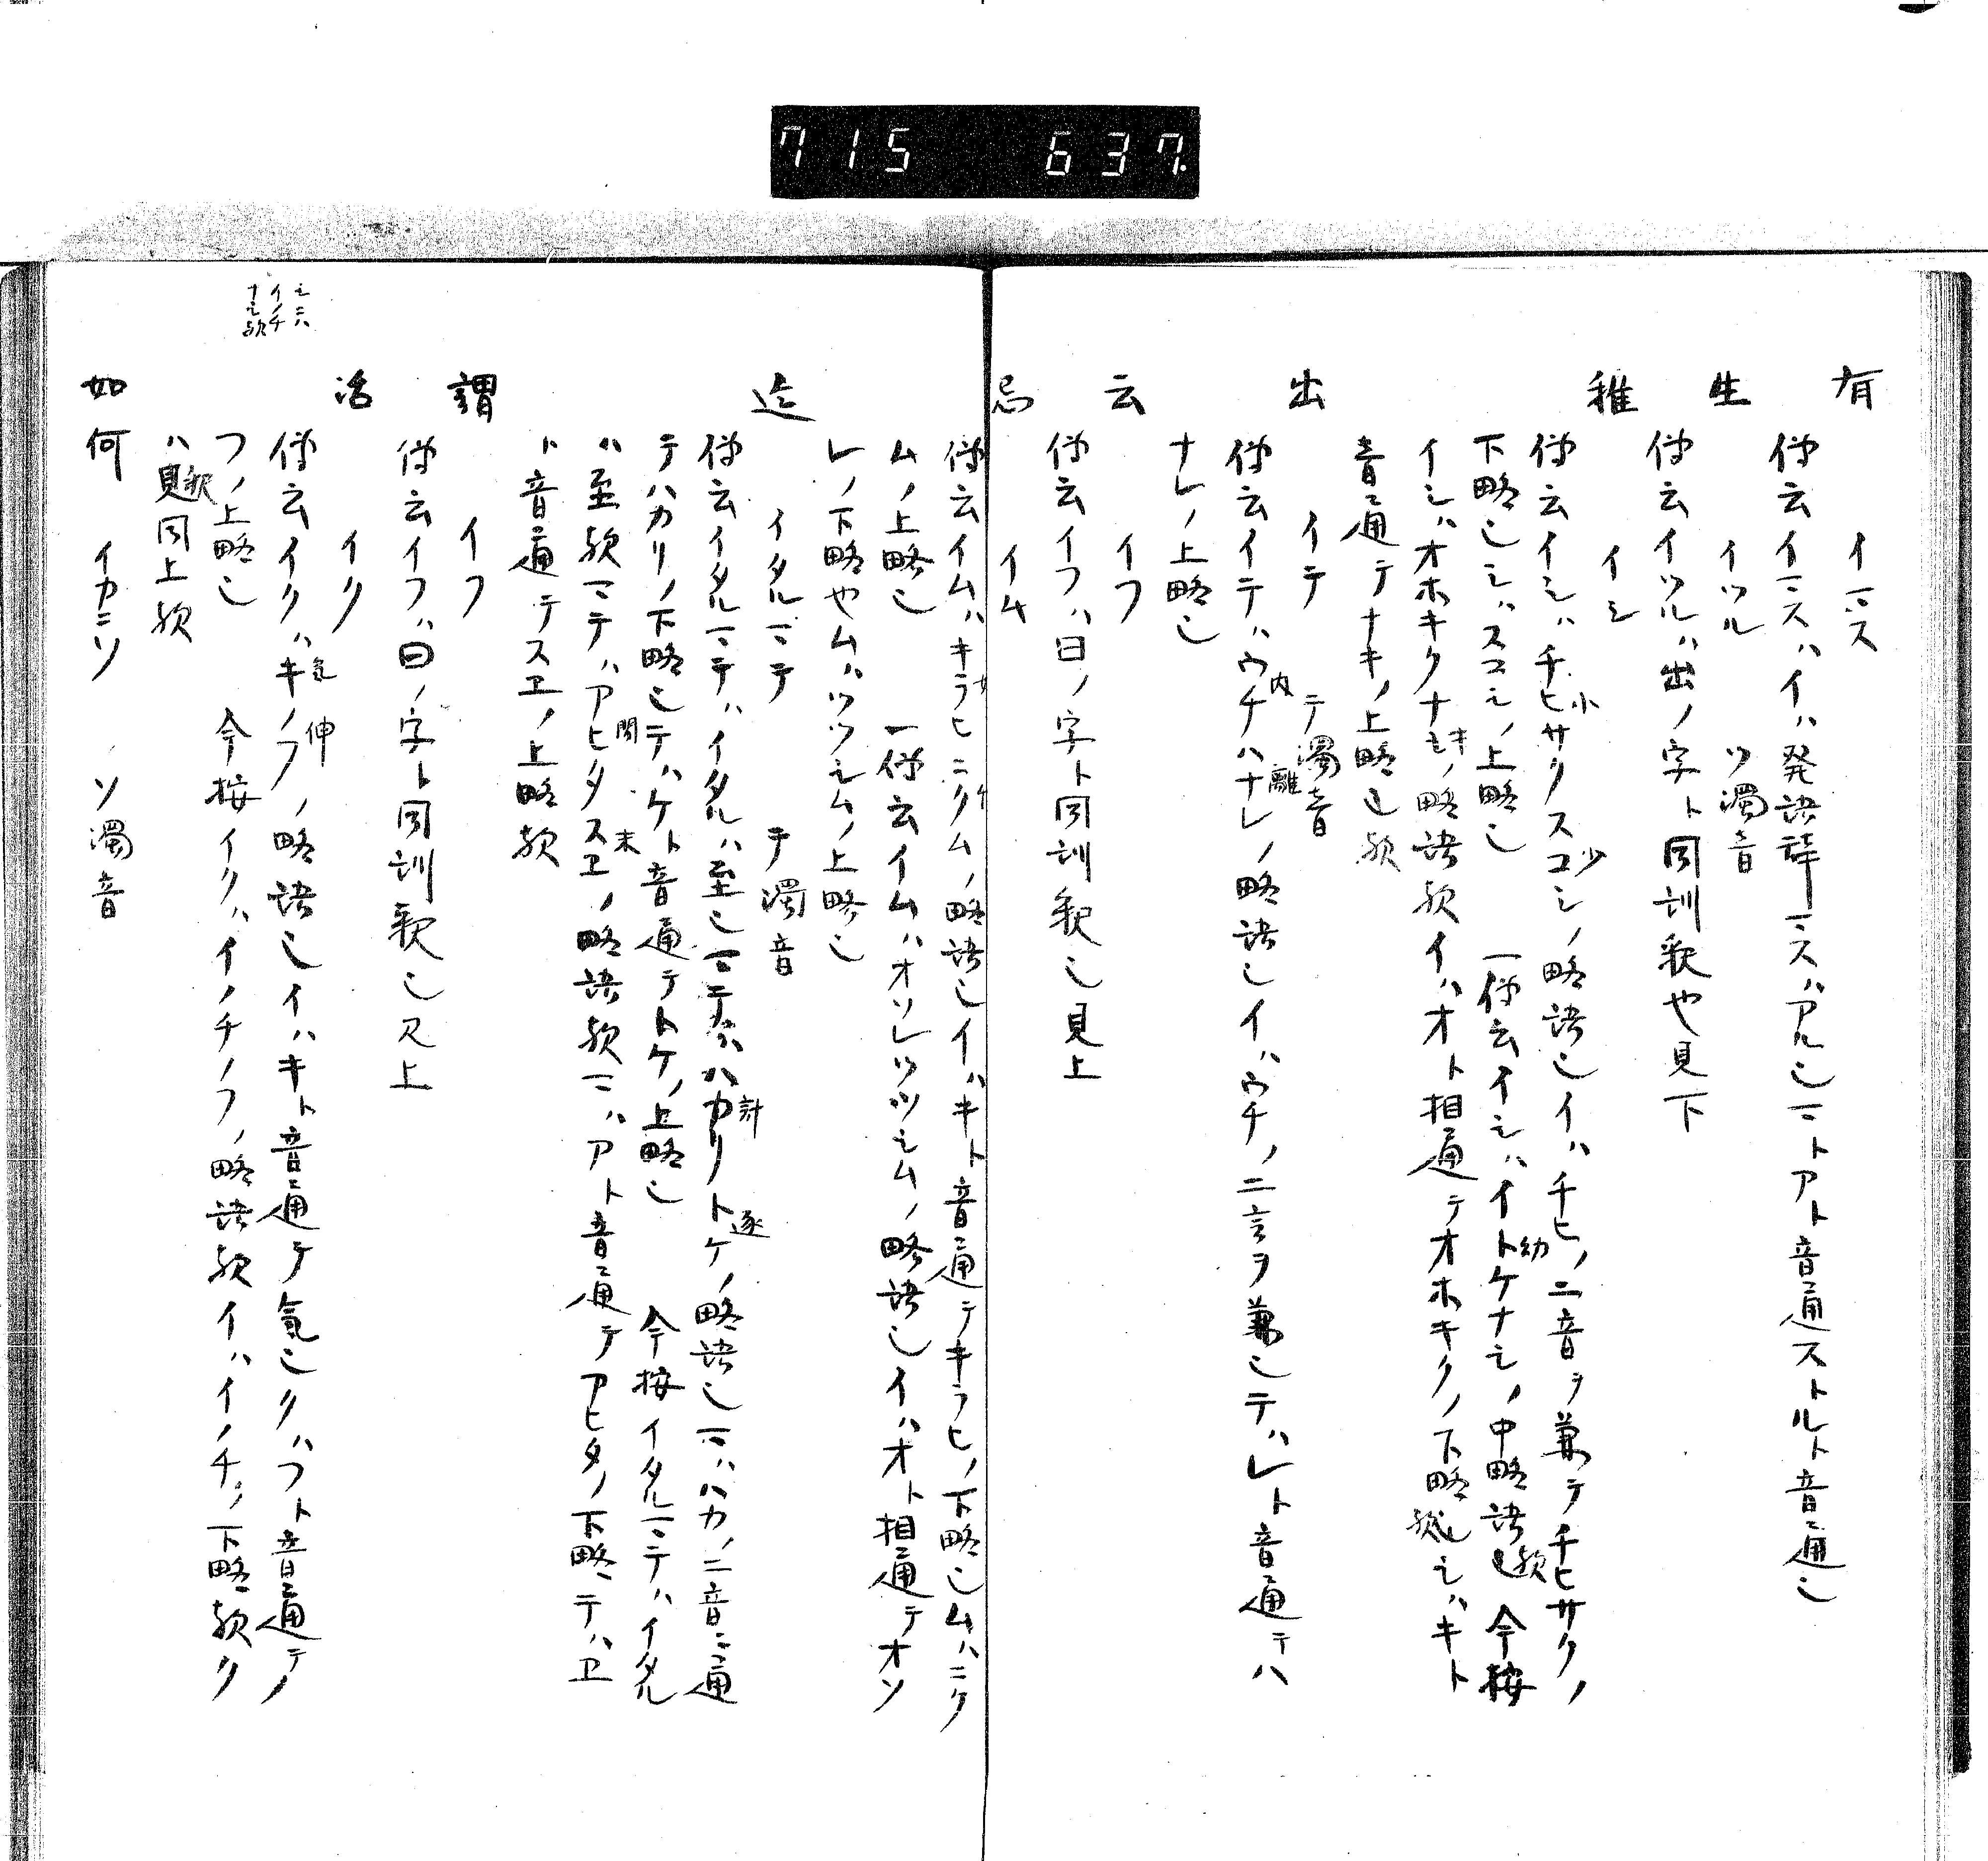 715 637
有 イマス
伝云イマスハイハ発語辞マスハアル也マトアト音通ストルト音通也
生 イツル ツ濁音
伝云イツルハ出ノ字ト同訓歟也見下
稚 イシ
伝云イシハチヒサクスコシノ略語也イハチヒノ二音ヲ兼テチヒサクノ
小 少
下略也シハスコシノ上略也 一伝云イシハイトケナシノ中略語也歟 今按
幼
イシハオホキクナキノ略語歟イハオト相通テオホキクノ下略歟シハキト
音通テナキノ上略也歟
出 イテ テ濁音
伝云イテハウチハナレノ略語也イハウチノ二言ヲ兼也テハレト音通テハ
内 離
ナレノ上略也
云 イフ
伝云イフハ曰ノ字ト同訓釈也見上
忌 イム
伝云イムハキラヒニクムノ略語也イハキト音通テキラヒノ下略也ムハニク
ムノ上略也 一伝云イムハオソレツツシムノ略語也イハオト相通テオソ
レノ下略也ムハツツシムノ上略也
迄 イタルマテ テ濁音
伝云イタルマテハイタルハ至也マテハハカリトケノ略語也マハハカノ二音ニ通
計 逐
テハカリノ下略也テハケト音通テトケノ上略也 今按イタルマテハイタル
ハ至歟マテハアヒタスヱノ略語歟マハアト音通テアヒタノ下略テハヱ
間 末
ト音通テスヱノ上略歟
謂 イフ
伝云イフハ曰ノ字ト同訓釈也見上
活 イク
伝云イクハキノフノ略語也イハキト音通テ気也クハフト音通テノ
気 伸
フノ上略也 今按イクハイノチノフノ略語歟イハイノチノ下略歟ク
ハ見同上歟
如何 イカニソ ソ濁音